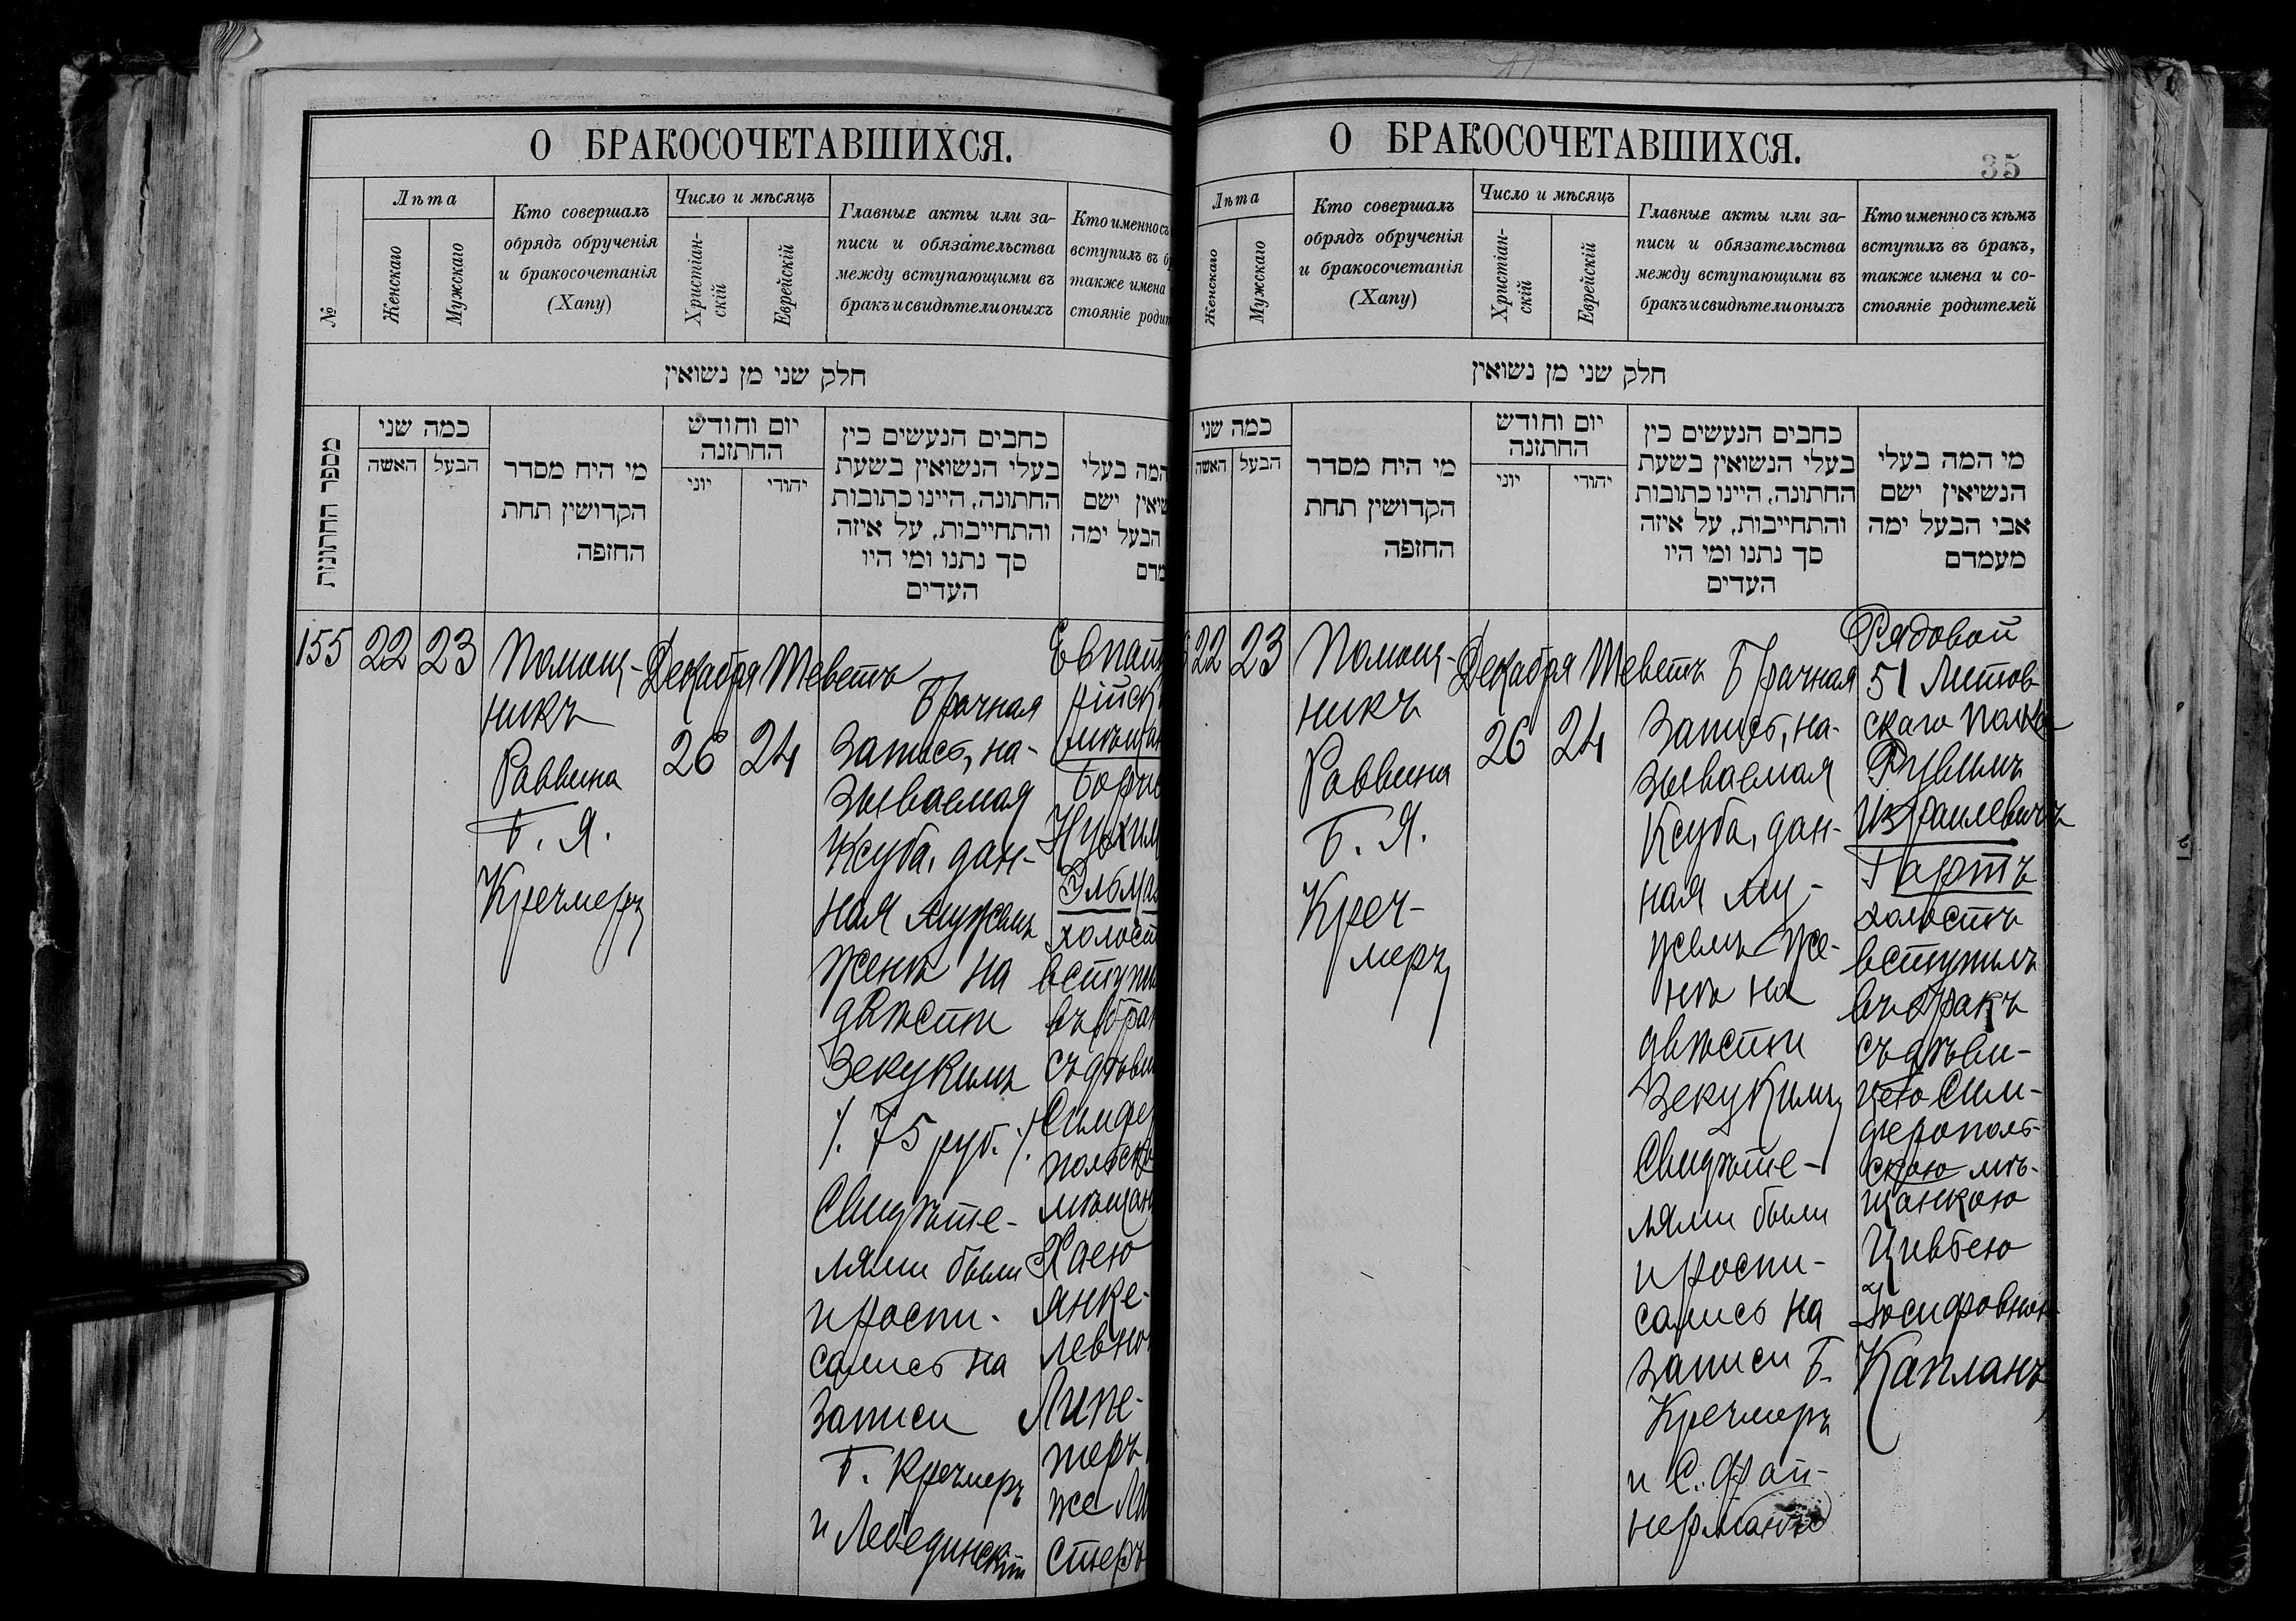 О БРАКОСОЧЕТАВШИХСЯ.
№
Лѣта
Женскаго
Мужскаго
Кто совершалъ
обрядъ обрученія
и бракосочетанія
(Хапу)
Число и мѣсяцъ
Христіан-
скій
Еврейскій
Главные акты или за-
писи и обязательства
между вступающими въ
бракъ и свидѣтели оныхъ
Кто именно съ
вступилъ въ б
также имена
стояніе роди
חלק שני מן נשואין
מספר החתונות
כמה שני
האשה
הבעל
מי היח מסדר
הקדושין תחת
החזפה
יום וחודש
החתזנה
יוני
יהודי
כחבים הנעשים כין
בעלי הנשואין בשעת
החתונה, היינו כתובות
והתחייבות, על איזה
סך נתנו ומי היו
העדים
המה בעלי
שיאין ישם
הבעל ימה
מדם
155
22
23
Помощ-
никъ
Раввина
Б. Я.
Кречмеръ
Декабря
26
Теветъ
24
Брачная
Запись, на-
зываемая
Ксуба, дан-
ная мужемъ
женѣ на
двѣсти
Зекукимъ
/. 75 руб. /.
Свидѣте-
лями были
и роспи-
сались на
записи
Б. Кречмеръ
и Лебединскій
Евпат
рійск
мѣщан
Борис
Нухим
холост
вступи
въ брак
съ дѣви
Симфер
польско
мѣщан
Хаею
Янке-
левно
Липе-
теръ
же Ли
стеръ
О БРАКОСОЧЕТАВШИХСЯ.
35
Лѣта
Женскаго
Мужскаго
Кто совершалъ
обрядъ обрученія
и бракосочетанія
(Хапу)
Число и мѣсяцъ
Христіан-
скій
Еврейскій
Главные акты или за-
писи и обязательства
между вступающими въ
бракъ и свидѣтели оныхъ
Кто именно съ кѣмъ
вступилъ въ бракъ,
также имена и со-
стояніе родителей
חלק שני מן נשואין
כמה שני
האשה
הבעל
מי היח מסדר
הקדושין תחת
החזפה
יום וחודש
החתזנה
יוני
יהודי
כחבים הנעשים כין
בעלי הנשואין בשעת
החתונה, היינו כתובות
והתחייבות, על איזה
סך נתנו ומי היו
העדים
מי המה בעלי
הנשיאין ישם
אבי הבעל ימה
מעמדם
22
23
Помощ-
никъ
Раввина
Б. Я.
Креч-
меръ
Декабря
26
Теветъ
24
Брачная
Запись, на-
зываемая
Ксуба, дан-
ная му-
жемъ же-
нѣ на
двѣсти
Зекукимъ
Свидѣте-
лями были
и роспи-
сались на
записи Б.
Кречмеръ
и С. Фай-
нерманъ
Рядовой
51 Литов-
скаго полка
Рувимъ
Израилевичъ
Гартъ
холостъ
вступилъ
въ бракъ
съ дѣви-
цею Сим-
ферополь-
скою мѣ-
щанкою
Цивьею
Іосифовною
Капланъ